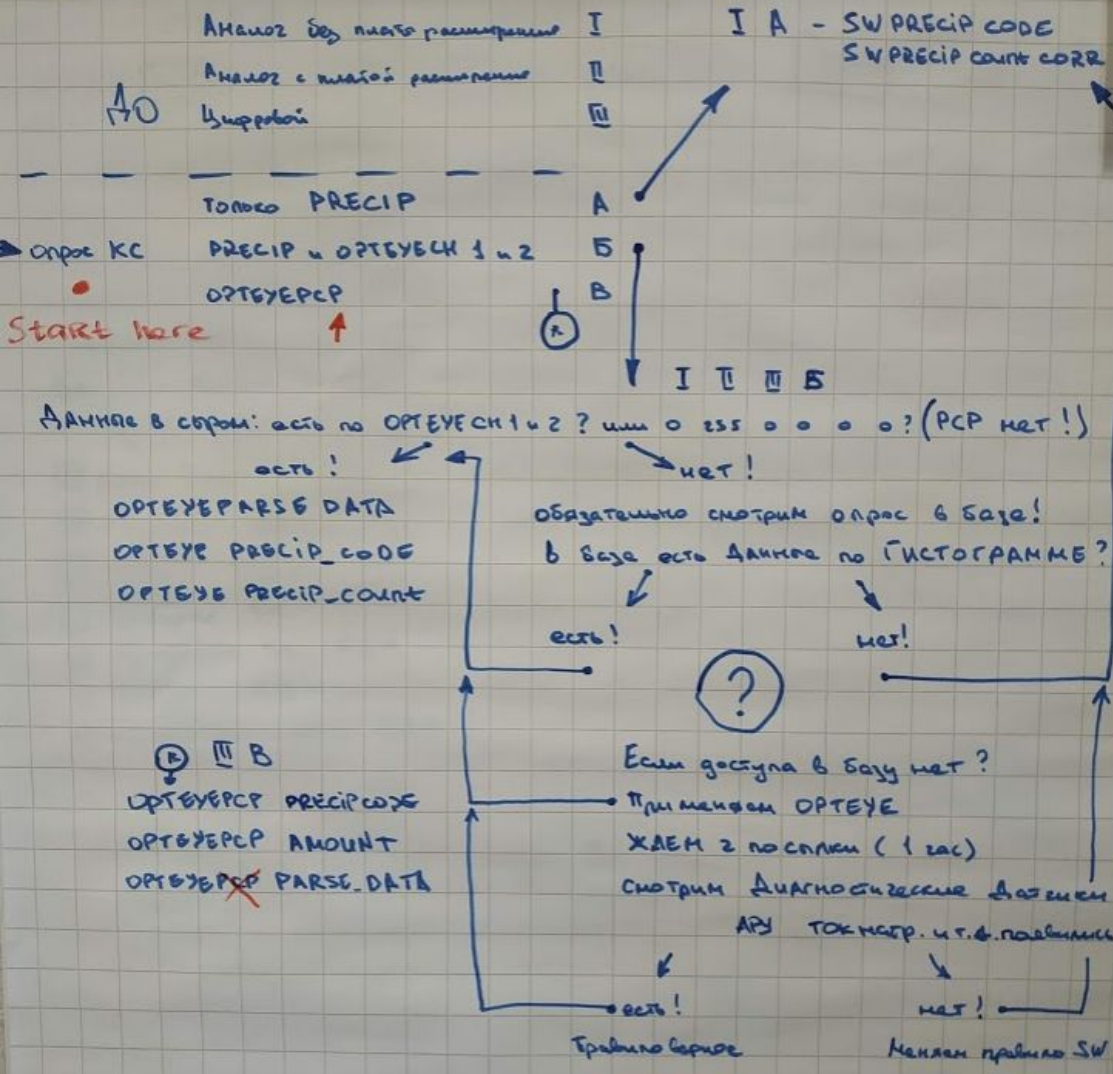 Аналог без платы расширения I
Аналог с платой расширения II
ДО Цифровой III
I А - SW PRECIP CODE
SW PRECIP COUNT CORR
Только PRECIP А
опрос КС PRECIP и OPTEYECH 1 и 2 Б
OPTEYEPCP В
Start here
R
I II III Б
Данные в сыром: есть по OPTEYECH 1 и 2 ? или 0 255 0 0 0 0 ? (PCP нет!)
есть!
нет!
OPTEYEPARSE DATA
OPTEYE PRECIP_CODE
OPTEYE PRECIP_COUNT
обязательно смотрим опрос в базе!
В базе есть данные по ГИСТОГРАММЕ?
есть!
нет!
?
R III В
OPTEYEPCP PRECIPCODE
OPTEYEPCP AMOUNT
OPTEYEPCP PARSE_DATA
Если доступа в базу нет?
Применяем OPTEYE
ЖДЕМ 2 посылки (1 час)
смотрим Диагностические Датчики
АРУ ток нагр. и т.д. появились
есть!
нет!
Правило верное
Меняем правило SW